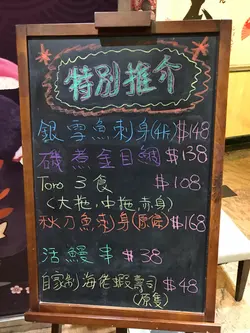 特別推介
銀雪魚刺身(4片)$148
磯煮金目鯛 $138
Toro 3食 $108
(大拖,中拖,赤身)
秋刀魚刺身(原條)$168
活鰻串 $38
自家制海佬蝦壽司 $48
(原隻)